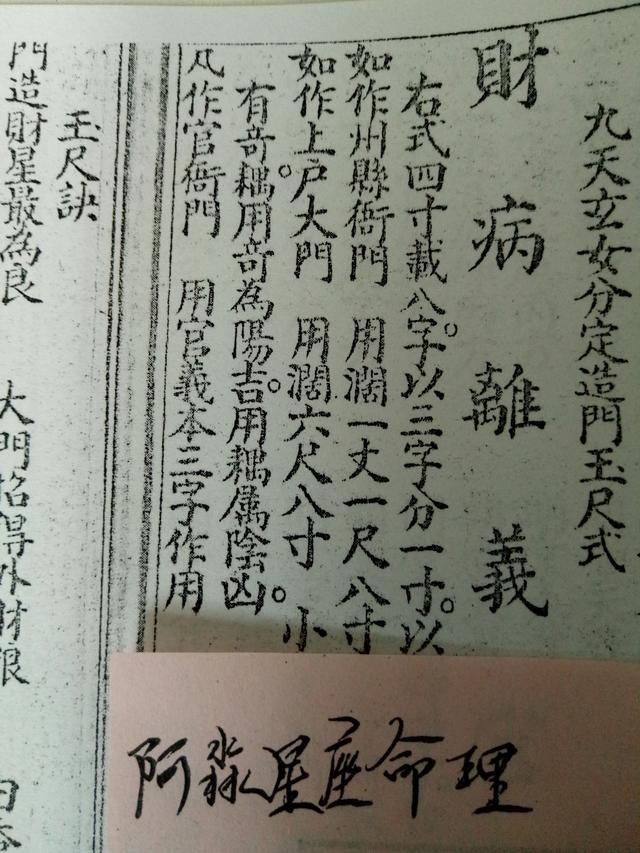 九天玄女分定造門玉尺式
財 病 離 義
右式四寸載八字。以三字分一寸。以
如作州縣衙門 用濶一丈一尺八寸
如作上戶大門 用濶六尺八寸 小
有竒耦用竒為陽吉。用耦属陰凶。
凡作官衙門 用官義本三字作用
玉尺訣
門造財星最為良 大門招得外財銀
阿淼星座命理